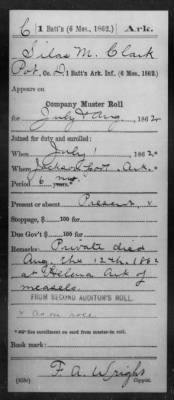 C | 1 Batt's (6 Mos., 1862.) | Ark.
Silas M. Clark
Pvt, Co. D, 1 Batt's Ark. Inf. (6 Mos., 1862.)
Appears on
Company Muster Roll
for July & Aug, 1862
Joined for duty and enrolled:
When July 1, 1862
Where Jackson Port, Ark.
Period 6 mos years.*
Present or absent Present x
Stoppage, $ 100 for
Due Gov't $ 100 for
Remarks: Private died
Aug, the 12th, 1862
at Helena Ark of
measels.
FROM SECOND AUDITOR'S ROLL.
x as on roll
* See enrollment on card from muster-in roll.
Book mark:
F. A. Wright
Copyist.